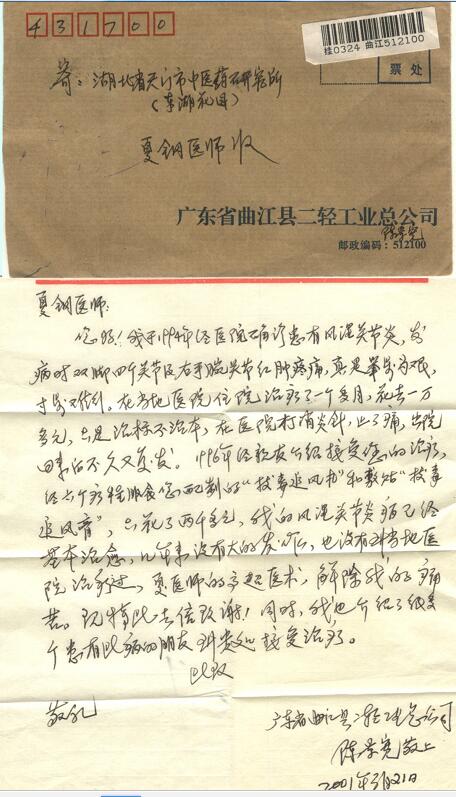 431700
挂0324 曲江512100
票处
寄：湖北省天门市中医药研究所
（东湖花园）
夏钢医师收
广东省曲江县二轻工业总公司
邮政编码：512100
夏钢医师：
您好！我于1994年经医院确诊患有风湿关节炎，发
病时双脚四个关节及右手腕关节红肿疼痛，真是举步为艰，
寸步难行。在当地医院住院治疗了一个多月，花去一万
多元，只是治标不治本，在医院打消炎针，止了痛，出院
回来后不久又复发。1996年经亲友介绍接受您的治疗，
经六个疗程服食您配制的“拔毒追风丹”和敷贴“拔毒
追风膏”，只花了两千多元，我的风湿关节炎病已经
基本治愈，几年来没有大的发作，也没有到当地医
院治疗过，夏医师的高超医术，解除我的痛
苦。现特此去信致谢！同时，我也介绍了很多
个患有此病的朋友到贵处接受治疗。
此致
敬礼
广东省曲江县二轻工业总公司
陈景尧敬上
2001年3月21日